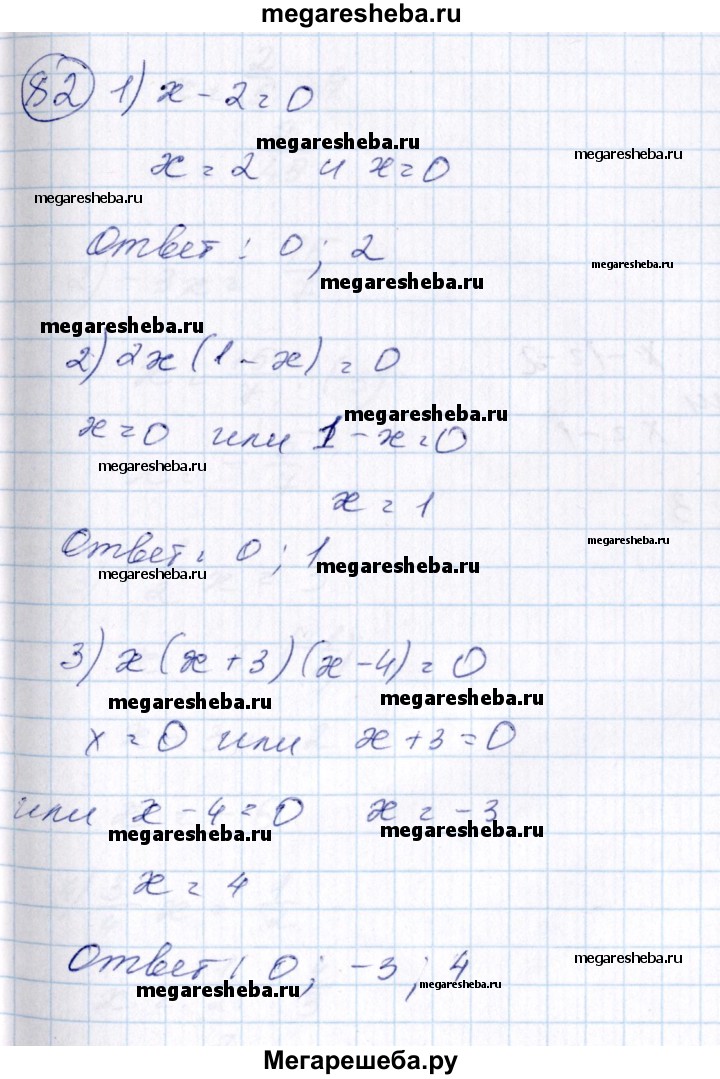 megaresheba.ru
82 1) x - 2 = 0
megaresheba.ru
megaresheba.ru
x = 2 и x = 0
megaresheba.ru
Ответ: 0; 2
megaresheba.ru
megaresheba.ru
megaresheba.ru
2) 2x(1 - x) = 0
megaresheba.ru
x = 0 или 1 - x = 0
megaresheba.ru
megaresheba.ru
x = 1
Ответ: 0; 1
megaresheba.ru
megaresheba.ru
megaresheba.ru
3) x(x + 3)(x - 4) = 0
megaresheba.ru
megaresheba.ru
x = 0 или x + 3 = 0
megaresheba.ru
или x - 4 = 0 x = -3
megaresheba.ru
megaresheba.ru
x = 4
Ответ: 0; -3; 4
megaresheba.ru
megaresheba.ru
megaresheba.ru
Мегарешеба.ру